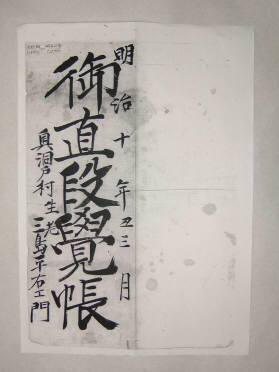 明治十年丑三月
御直段覺帳
真洞戸村生老
三島平右エ門